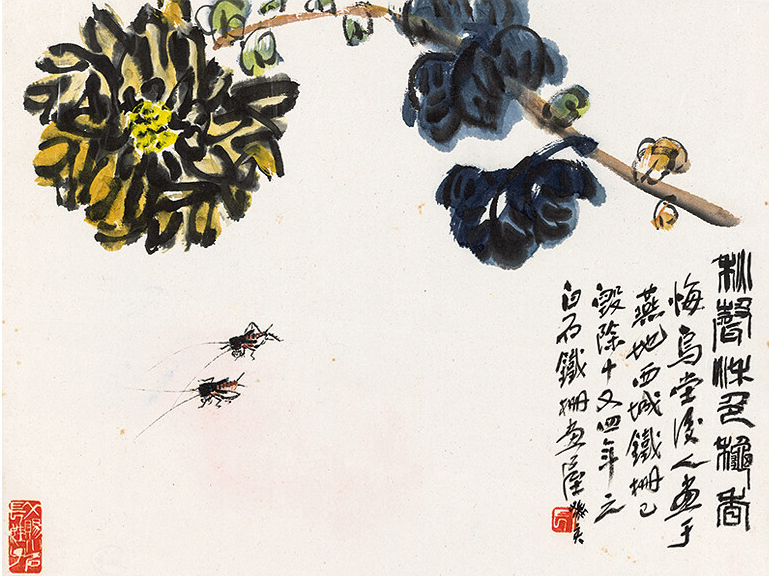 秋聲秌色龝香
悔烏堂後人畫于
燕地西城鐵柵已
毀除十又四年之
白石鐵柵畫屋